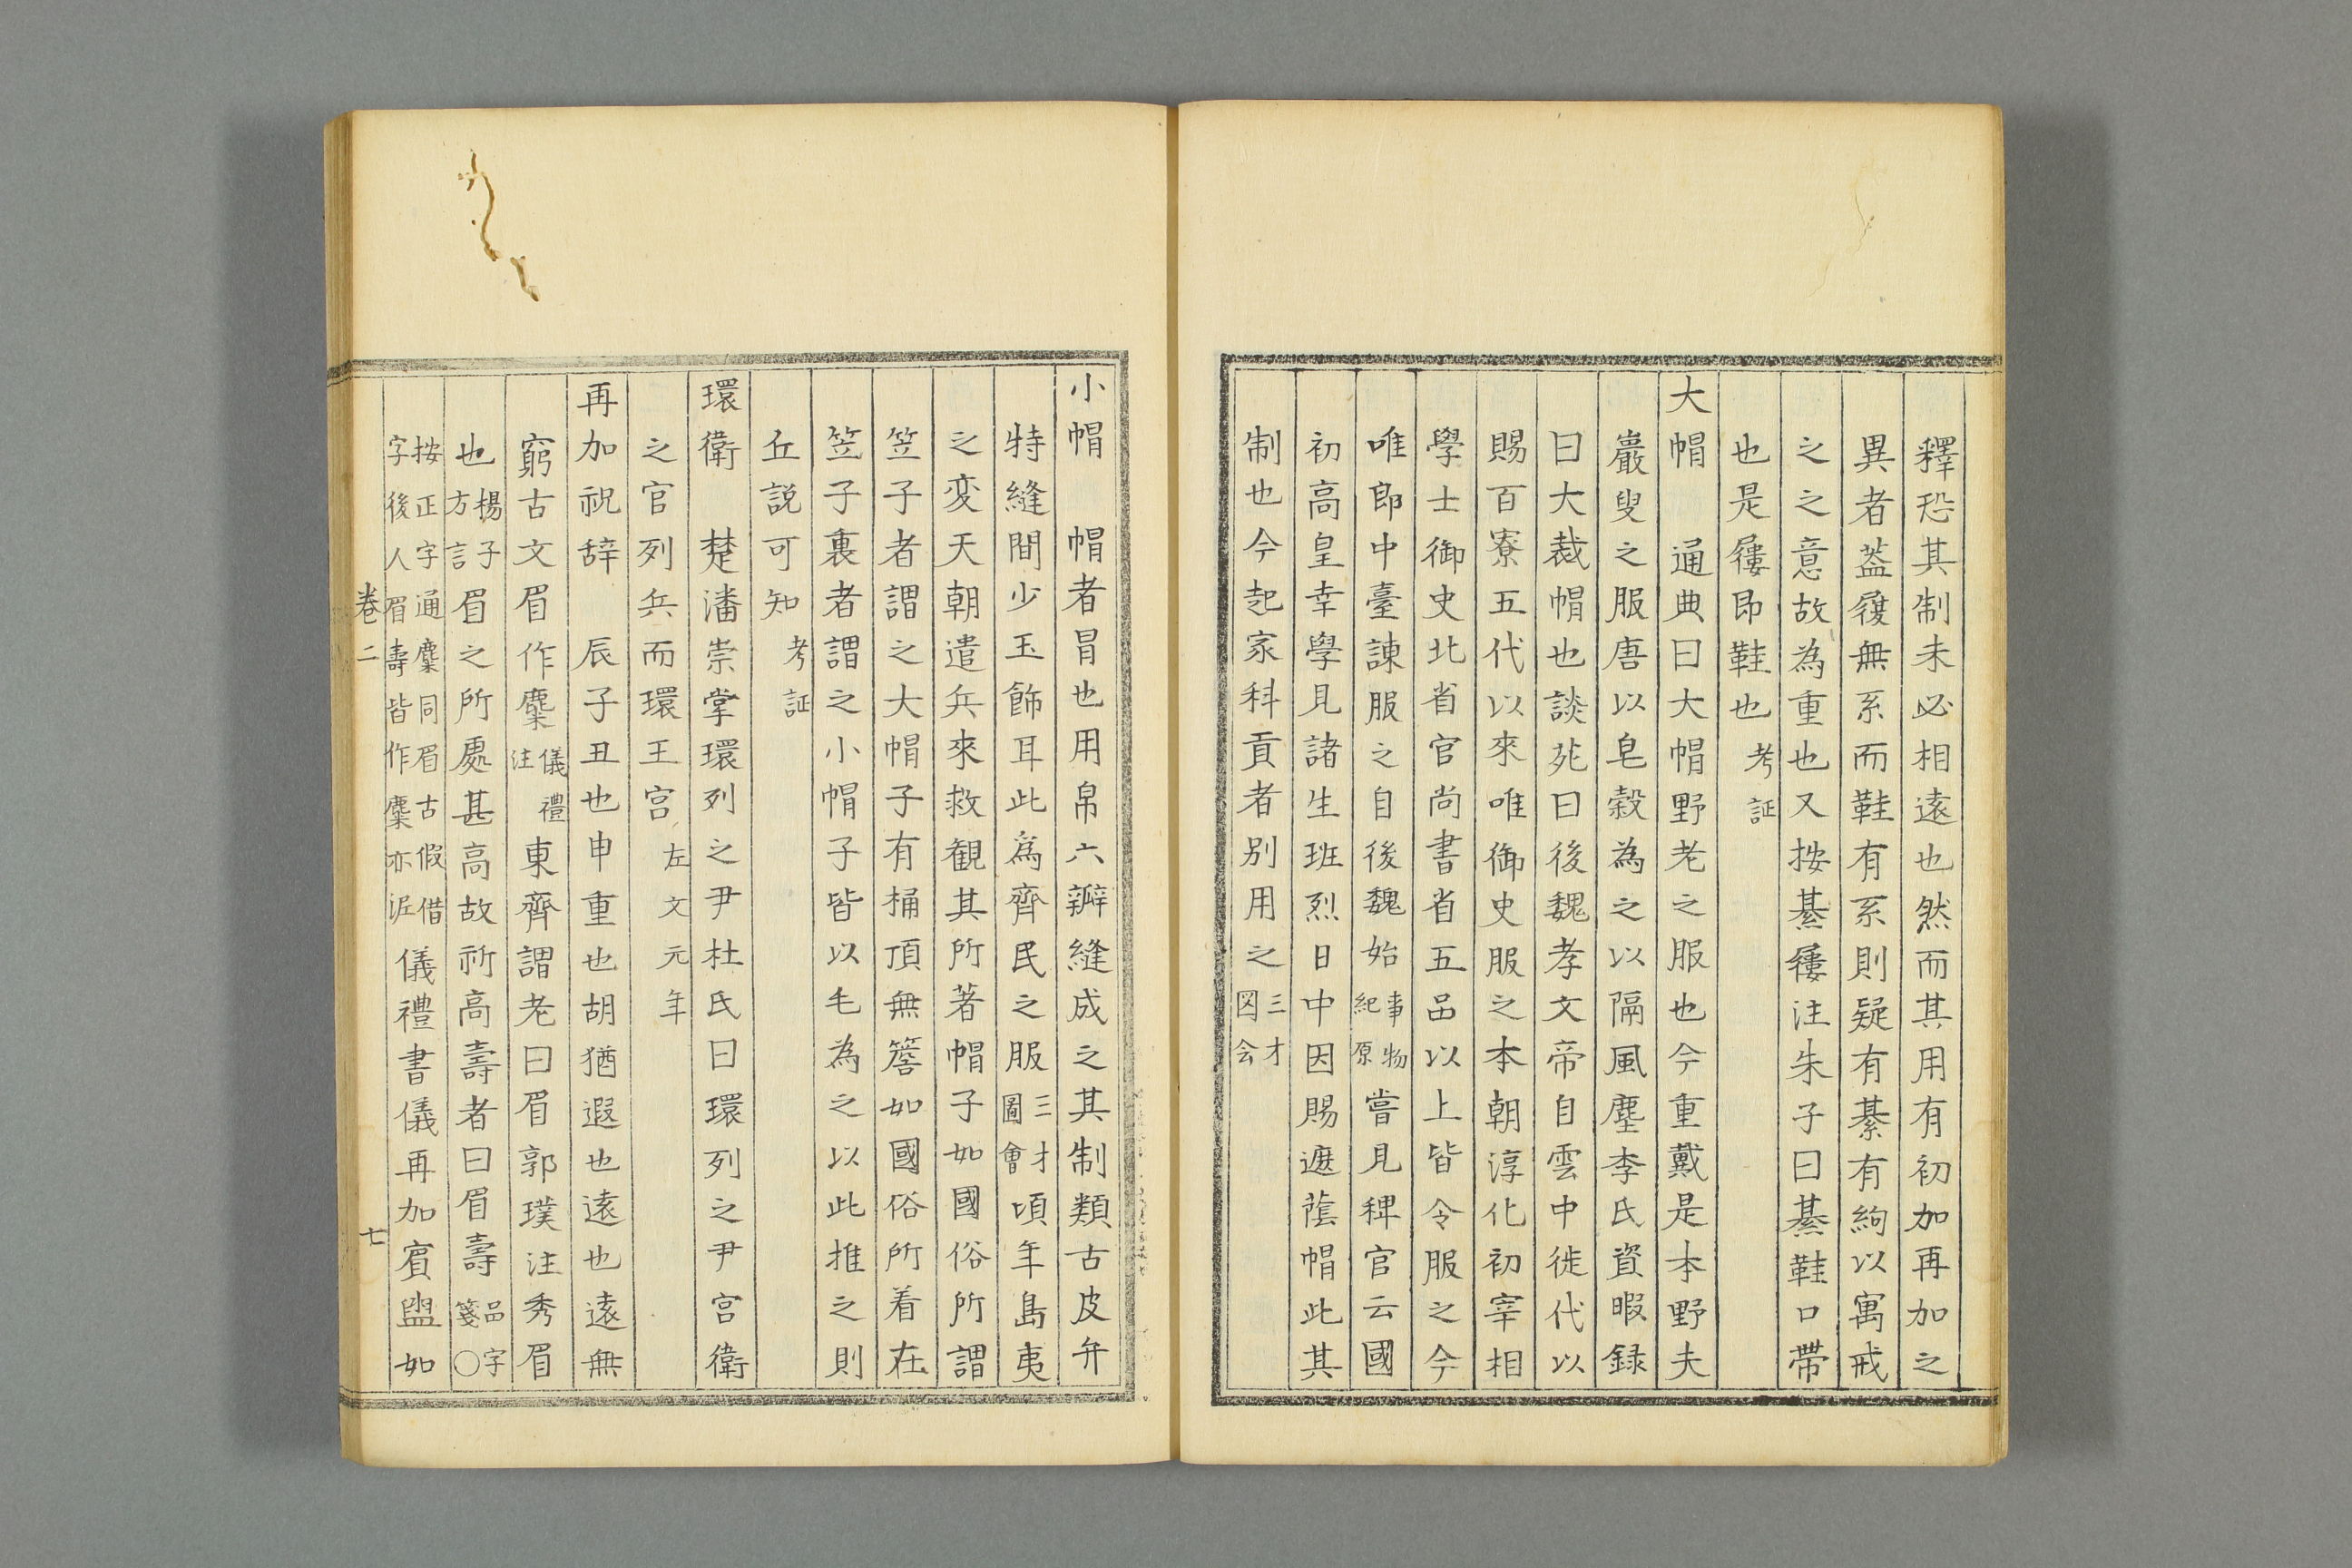 釋恐其制未必相遠也然而其用有初加再加之
異者葢屨無系而鞋有系則疑有綦有絇以寓戒
之之意故為重也又按綦屨注朱子曰綦鞋口帶
也是屨即鞋也考証
大帽 通典曰大帽野老之服也今重戴是本野夫
巖叟之服唐以皂縠為之以隔風塵李氏資暇録
曰大裁帽也談苑曰後魏孝文帝自雲中徙代以
賜百寮五代以來唯御史服之本朝淳化初宰相
學士御史北省官尚書省五品以上皆令服之今
唯郎中臺諫服之自後魏始事物紀原嘗見稗官云國
初高皇幸學見諸生班烈日中因賜遮蔭帽此其
制也今起家科貢者別用之三才図会
小帽 帽者冒也用帛六瓣縫成之其制類古皮弁
特縫間少玉飾耳此為齊民之服三才圖會頃年島夷
之変天朝遣兵來救観其所著帽子如國俗所謂
笠子者謂之大帽子有桶頂無簷如國俗所着在
笠子裏者謂之小帽子皆以毛為之以此推之則
丘説可知考証
環衛 楚潘崇掌環列之尹杜氏曰環列之尹宮衛
之官列兵而環王宮左文元年
再加祝辞 辰子丑也申重也胡猶遐也遠也遠無
窮古文眉作麋儀禮注東齊謂老曰眉郭璞注秀眉
也楊子方言眉之所處甚高故祈高壽者曰眉壽品字箋〇
按正字通麋同眉古假借字後人眉壽皆作麋亦泥儀禮書儀再加賓盥如
卷二 七